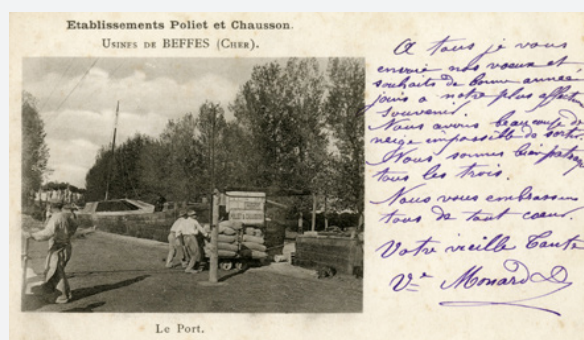 Etablissements Poliet et Chausson.
Usines de BEFFES (Cher).
A tous je vous
envoie nos vœux et
souhaits de bonne année
joins a notre plus affectu
souvenir
Nous avons beaucoup de
neige impossible de sortir
Nous sommes bien
tous les trois.
Nous vous embrassons
tous de tout cœur.
Votre vieille Tante
Vᵉ Monard
Le Port.